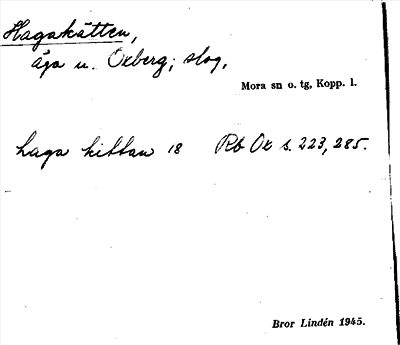 Hagakätten,
äga u. Oxberg; slog.
Mora sn o. tg, Kopp. l.
haga kittan 18 Rb Ox s. 223, 285.
Bror Lindén 1945.